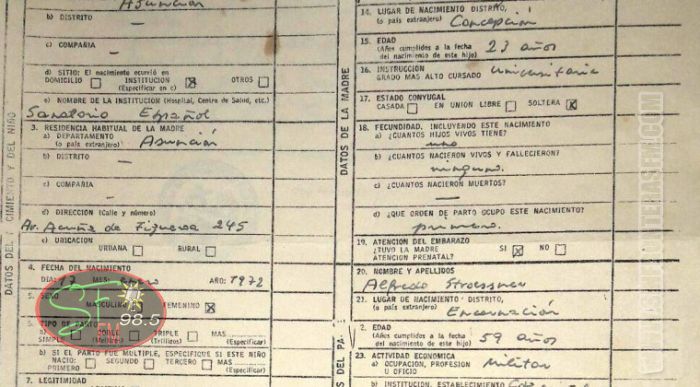 Asunción
b) DISTRITO
c) COMPAÑIA
d) SITIO: El nacimiento ocurrió en
DOMICILIO INSTITUCION OTROS
(Especificar en c) (Especificar)
e) NOMBRE DE LA INSTITUCION (Hospital, Centro de Salud, etc.)
Sanatorio Español
3. RESIDENCIA HABITUAL DE LA MADRE
a) DEPARTAMENTO
(o país extranjero) Asunción
b) DISTRITO
c) COMPAÑIA
d) DIRECCION (Calle y número)
Av. Acuña de Figueroa 245
e) UBICACION
URBANA RURAL
4. FECHA DEL NACIMIENTO
DIA: 17 MES: AÑO: 1972
5. SEXO
MASCULINO FEMENINO
TIPO DE PARTO
SIMPLE DOBLE TRIPLE MAS
(Mellizos) (Trillizos) (Especificar)
b) SI EL PARTO FUE MULTIPLE, ESPECIFIQUE SI ESTE NIÑO
NACIO: PRIMERO SEGUNDO TERCERO MAS
(Especificar)
7. LEGITIMIDAD
DATOS DEL NACIMIENTO Y DEL NIÑO
98.5
14. LUGAR DE NACIMIENTO DISTRITO,
(o país extranjero) Concepción
15. EDAD
(Años cumplidos a la fecha
del nacimiento de este hijo) 23 años
16. INSTRUCCION
GRADO MAS ALTO CURSADO universitaria
17. ESTADO CONYUGAL
CASADA EN UNION LIBRE SOLTERA
18. FECUNDIDAD, INCLUYENDO ESTE NACIMIENTO
a) ¿CUANTOS HIJOS VIVOS TIENE?
uno
b) ¿CUANTOS NACIERON VIVOS Y FALLECIERON?
ninguno.
c) ¿CUANTOS NACIERON MUERTOS?
d) ¿QUE ORDEN DE PARTO OCUPO ESTE NACIMIENTO?
primero.
19. ATENCION DEL EMBARAZO
¿TUVO LA MADRE
ATENCION PRENATAL? SI NO
20. NOMBRE Y APELLIDOS
Alfredo Stroessner
21. LUGAR DE NACIMIENTO - DISTRITO,
(o país extranjero) Encarnación
2. EDAD
(Años cumplidos a la fecha
del nacimiento de este hijo) 59 años
23. ACTIVIDAD ECONOMICA
a) OCUPACION, PROFESION
U OFICIO Militar
b) INSTITUCION, ESTABLECIMIENTO
DATOS DE LA MADRE
DATOS DEL PA